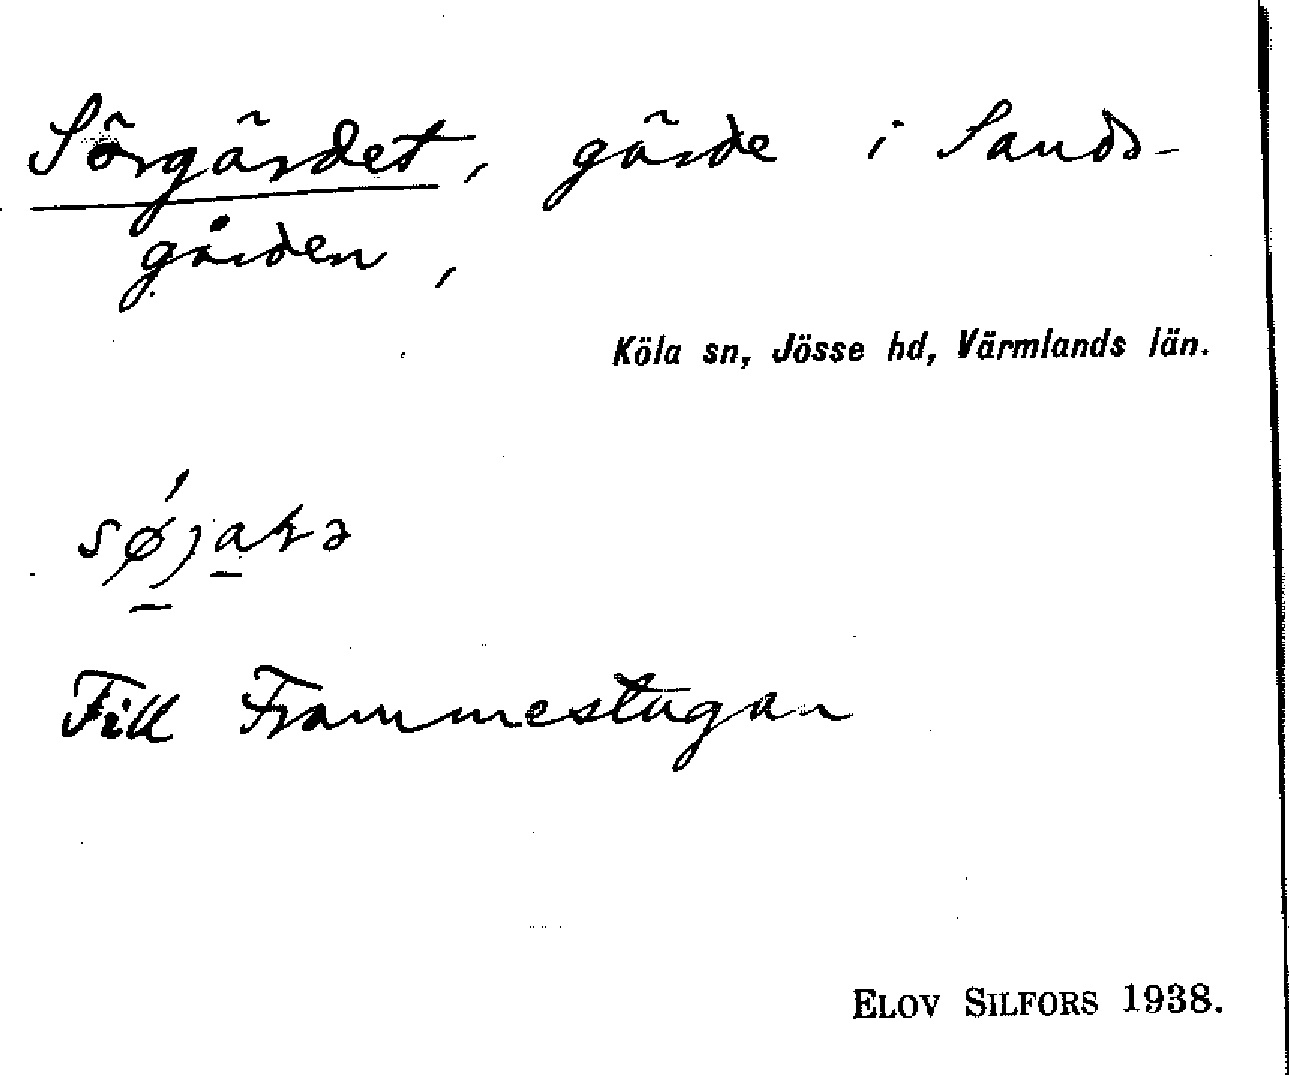 Sörgärdet, gärde i Sands-
gården,
Köla sn, Jösse hd, Värmlands län.
Till Frammestugan
ELOV SILFORS 1938.